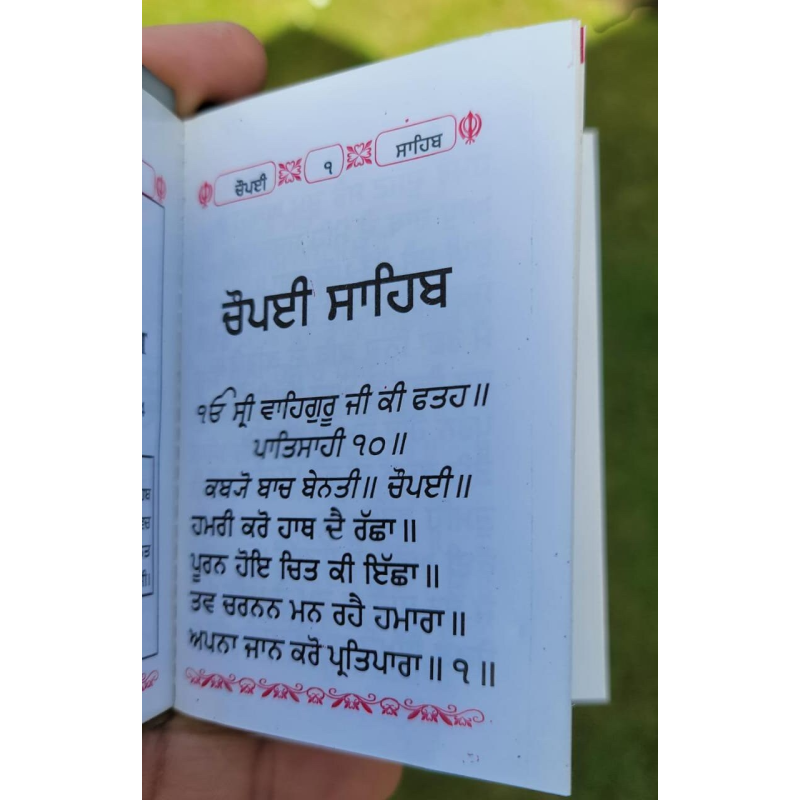 ਚੌਪਈ ੧ ਸਾਹਿਬ
ਚੌਪਈ ਸਾਹਿਬ
ੴ ਸ੍ਰੀ ਵਾਹਿਗੁਰੂ ਜੀ ਕੀ ਫਤਹ॥
ਪਾਤਿਸਾਹੀ ੧੦॥
ਕਬ੍ਯੋ ਬਾਚ ਬੇਨਤੀ॥ ਚੌਪਈ॥
ਹਮਰੀ ਕਰੋ ਹਾਥ ਦੈ ਰੱਛਾ॥
ਪੂਰਨ ਹੋਇ ਚਿਤ ਕੀ ਇੱਛਾ॥
ਤਵ ਚਰਨਨ ਮਨ ਰਹੈ ਹਮਾਰਾ॥
ਅਪਨਾ ਜਾਨ ਕਰੋ ਪ੍ਰਤਿਪਾਰਾ॥ ੧॥